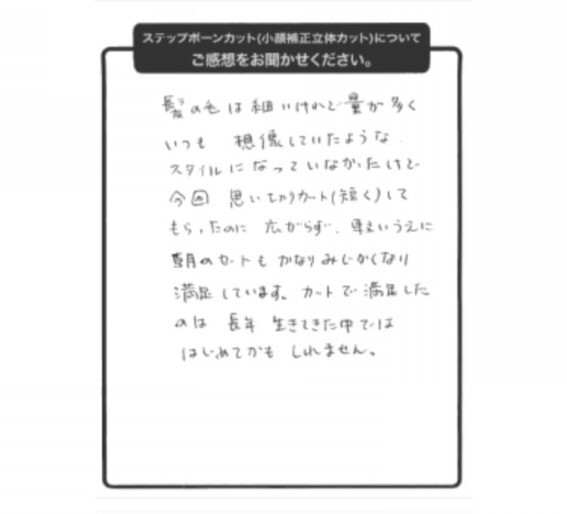 ステップボーンカット(小顔補正立体カット)について
ご感想をお聞かせください。
髪の毛は細いけれど量が多く
いつも 想像していたような
スタイルになっていなかったけど
今回 思いきりカット(短く)して
もらったのに 広がらず、軽いうえに
朝のセットもかなりみじかくなり
満足しています。カットで満足した
のは 長年 生きてきた中では
はじめてかも しれません。